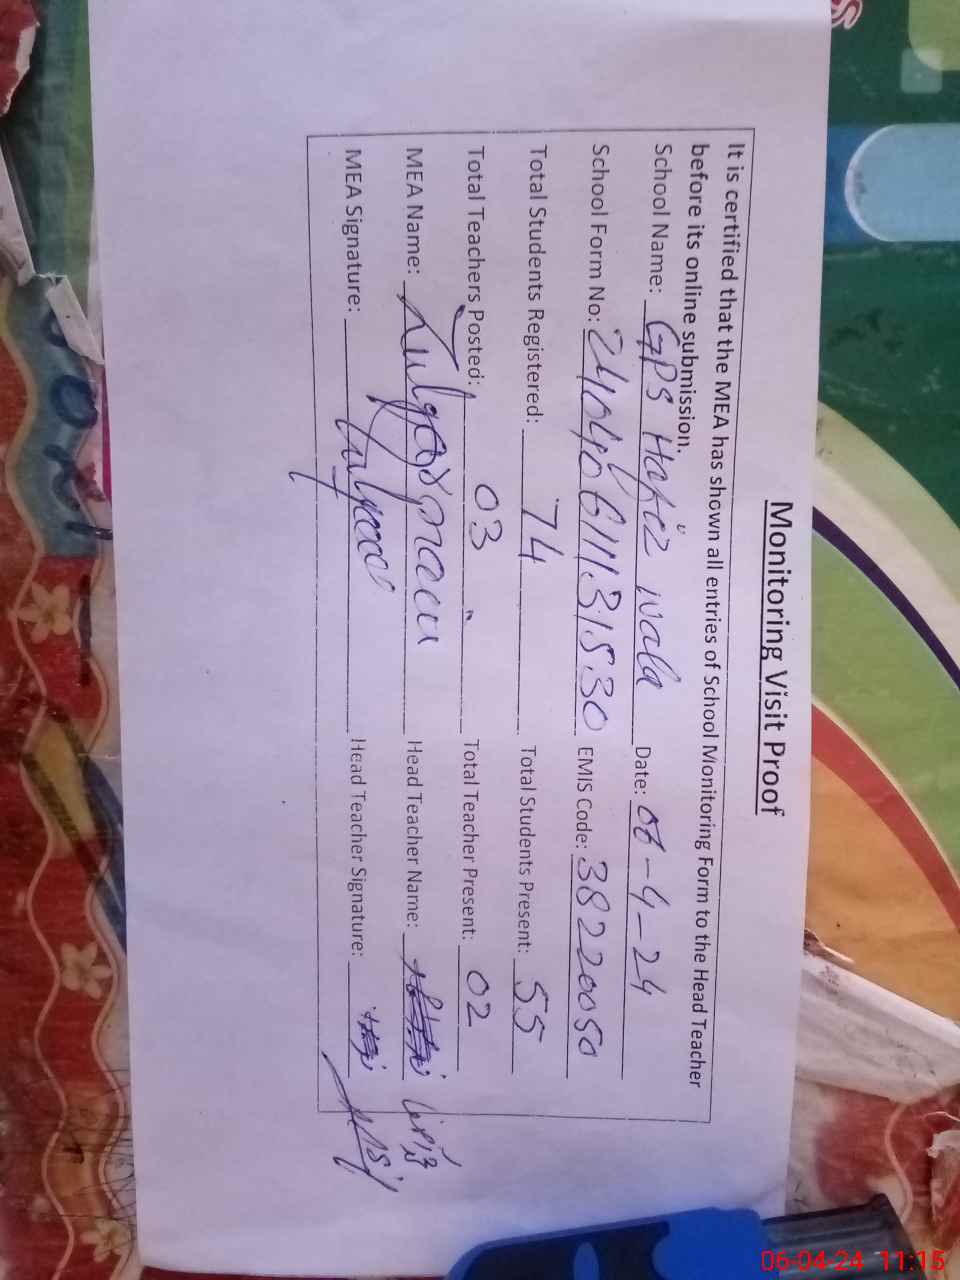 Monitoring Visit Proof
It is certified that the MEA has shown all entries of School Monitoring Form to the Head Teacher
before its online submission.
School Name: GPS Hafiz wala Date: 06-4-24
School Form No: EMIS Code: 38220050
Total Students Registered: 74 Total Students Present: 55
Total Teachers Posted: 03 Total Teacher Present: 02
MEA Name: Head Teacher Name:
MEA Signature: Head Teacher Signature:
06-04-24 11:15